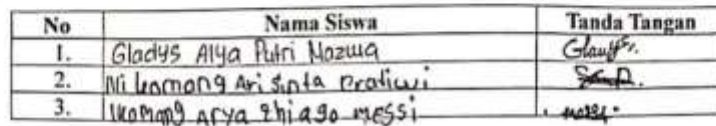 No Nama Siswa Tanda Tangan
1. Gladys Alya Putri Nazwa
2. Ni komang Ari Sinta Pratiwi
3. Ikomang Arya Thiago messi messi